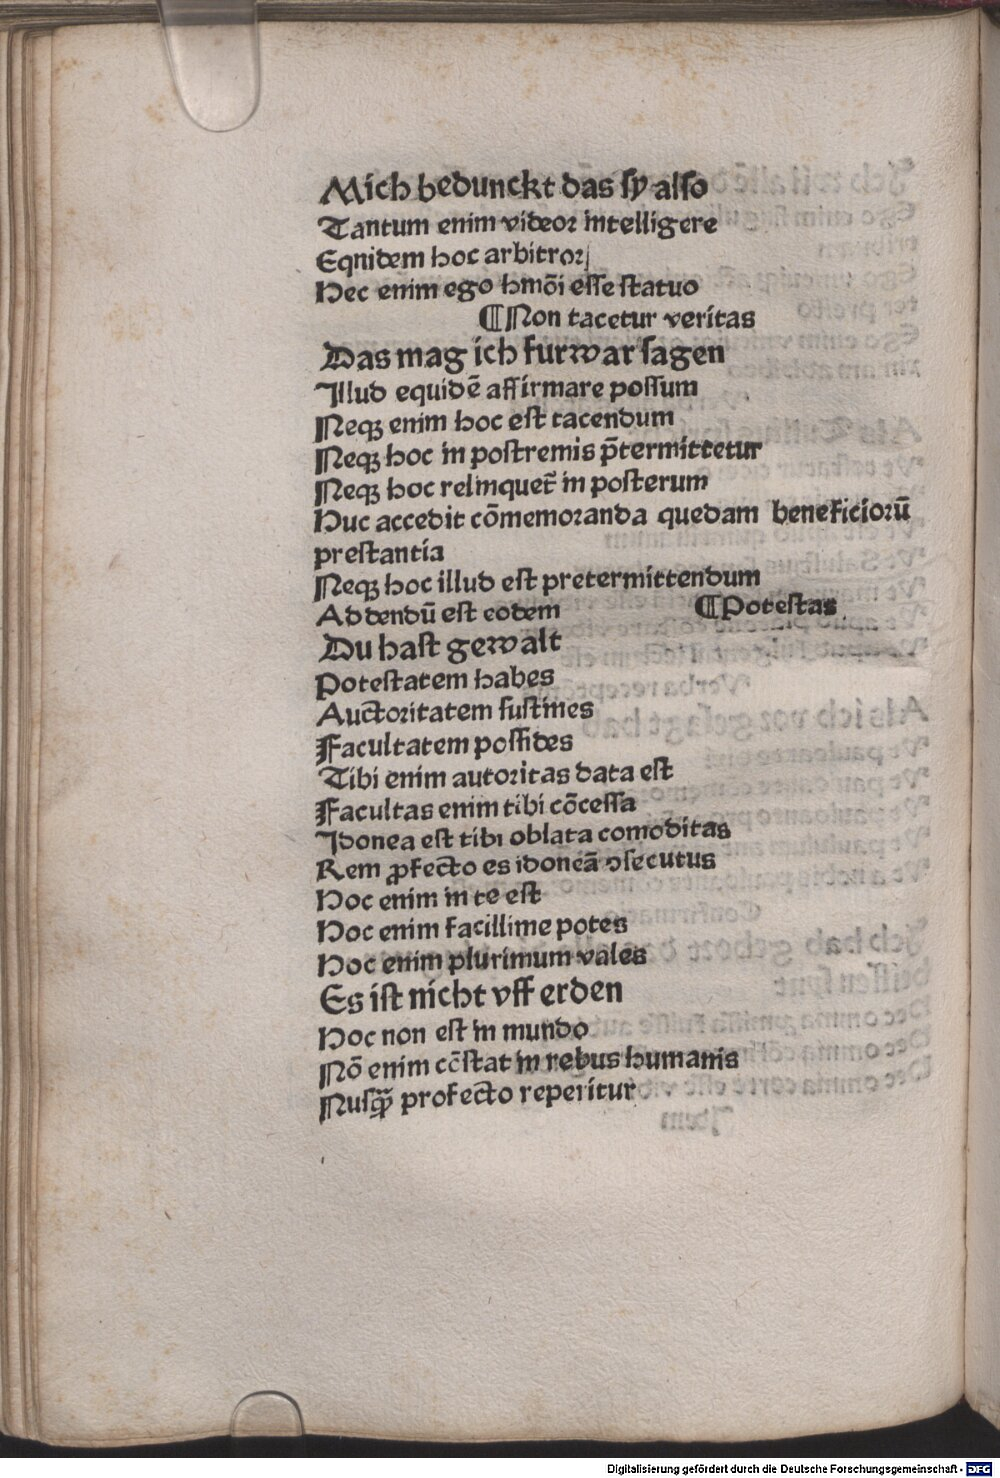 Mich bedunckt das ſy alſo
Tantum enim videoꝛ intelligere
Eqnidem hoc arbitroꝛ
Hec enim ego hmōi eſſe ſtatuo
¶Non tacetur veritas
Das mag ich furwar ſagen
Illud equidē affirmare poſſum
Neqꝫ enim hoc eſt tacendum
Neqꝫ hoc in poſtremis p̄termittetur
Neqꝫ hoc relinquet̄ in poſterum
Huc accedit cōmemoꝛanda quedam beneficioꝛū
preſtantia
Neqꝫ hoc illud eſt pretermittendum
Addendū eſt eodem ¶Poteſtas
Du haſt gewalt
Poteſtatem habes
Auctoꝛitatem ſuſtines
Facultatem poſſides
Tibi enim autoꝛitas data eſt
Facultas enim tibi cōceſſa
Idonea eſt tibi oblata comoditas
Rem ꝓfecto es idoneā ↄſecutus
Hoc enim in te eſt
Hoc enim facillime potes
Hoc enim plurimum vales
Es iſt nicht vff erden
Hoc non eſt in mundo
Nō enim cōſtat in rebus humanis
Nuſqꝫ̄ profecto reperitur
Digitalisierung gefördert durch die Deutsche Forschungsgemeinschaft - DFG